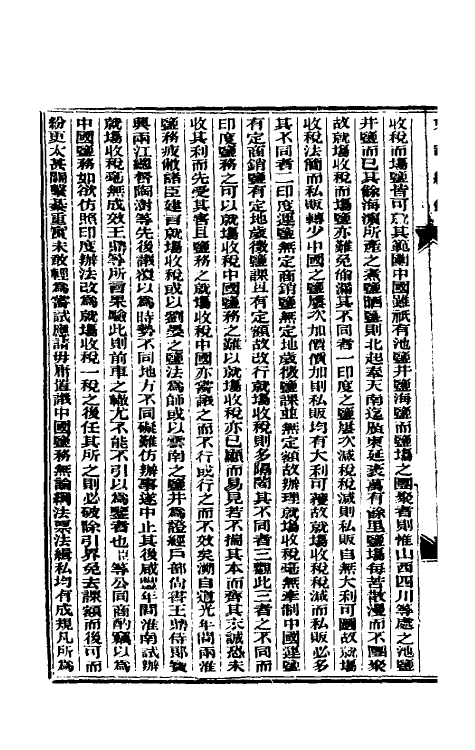 收稅而場鹽皆可爲其範圍中國雖祇有池鹽井鹽海鹽而鹽場之團聚者則惟山西四川等處之池鹽
井鹽而已其餘海濱所產之煮鹽晒鹽則北起奉天南迄廣東延袤萬有餘里鹽場每苦散漫而不團聚
故就場收稅而場鹽亦難免偷漏其不同者一印度之鹽屢次減稅稅減則私販自無大利可圖故就場
收稅法簡而私販轉少中國之鹽屢次加價價加則私販均有大利可穫故就場收稅稅減而私販必多
其不同者二印度運鹽無定商銷鹽無定地歲徵鹽課並無定額故辦理就場收稅毫無牽制中國運鹽
有定商銷鹽有定地歲徵鹽課且有定額故改行就場收稅則多隔閡其不同者三觀此三者之不同而
印度鹽務之可以就場收稅中國鹽務之難以就場收稅亦已顯而易見若不揣其本而齊其末誠恐未
收其利而先受其害且鹽務之就場收稅中國亦嘗議之而不行或行之而不效矣溯自道光年間兩淮
鹽務疲敝諸臣建言就場收稅或以劉晏之鹽法爲師或以雲南之鹽井爲證經戶部尙書王鼎侍郎寶
興兩江總督陶澍等先後議覆以爲時勢不同地方不同礙難仿辦事遂中止其後咸豐年間淮南試辦
就場收稅毫無成效王鼎等所言果驗此則前車之轍尤不能不引以爲鑒者也臣等公同商酌竊以爲
中國鹽務如欲仿照印度辦法改爲就場收稅一稅之後任其所之則必破除引界免去課額而後可而
紛更太甚關繫綦重實未敢輕爲嘗試應請毋庸置議中國鹽務無論綱法票法緝私均有成規凡所爲